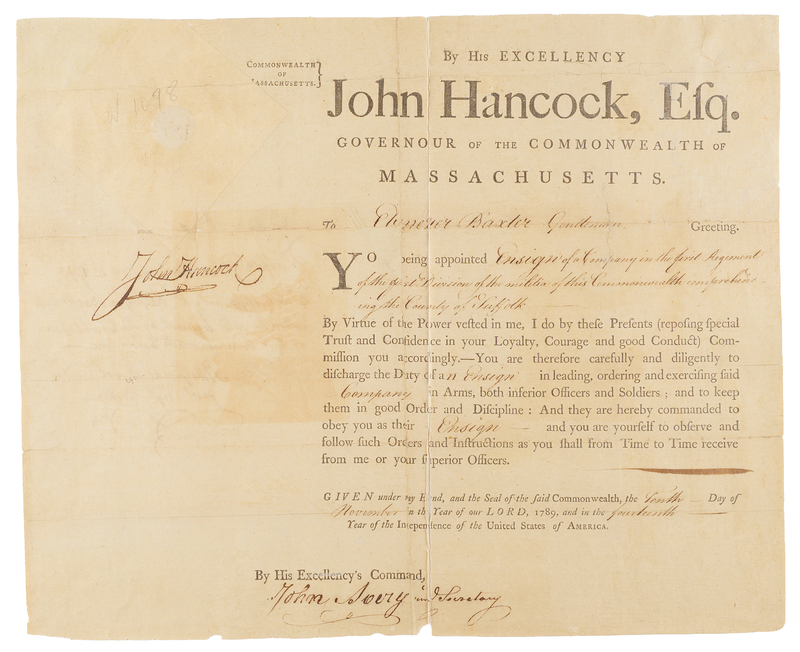 W 1698
COMMONWEALTH
OF
MASSACHUSETTS.
By His EXCELLENCY
John Hancock, Eſq.
GOVERNOUR OF THE COMMONWEALTH OF
MASSACHUSETTS.
To Ebenezer Baxter Gentleman Greeting.
John Hancock
YOU being appointed Ensign of a Company in the first Regiment
of the first Division of the militia of this Commonwealth comprehend-
ing the County of Suffolk
By Virtue of the Power veſted in me, I do by theſe Preſents (repoſing ſpecial
Truſt and Confidence in your Loyalty, Courage and good Conduct) Com-
miſſion you accordingly.—You are therefore carefully and diligently to
diſcharge the Duty of an Ensign in leading, ordering and exerciſing ſaid
Company in Arms, both inferior Officers and Soldiers ; and to keep
them in good Order and Diſcipline : And they are hereby commanded to
obey you as their Ensign and you are yourſelf to obſerve and
follow ſuch Orders and Inſtructions as you ſhall from Time to Time receive
from me or your ſuperior Officers.
GIVEN under my Hand, and the Seal of the ſaid Commonwealth, the Tenth Day of
November in the Year of our LORD, 1789, and in the fourteenth
Year of the Independence of the United States of AMERICA.
By His Excellency's Command,
John Avery junr Secretary